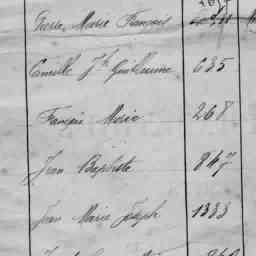 Pierre Marie François
Camille Jh Guillaume 635
François Marie 268
Jean Baptiste 847
Jean Marie Joseph 1333